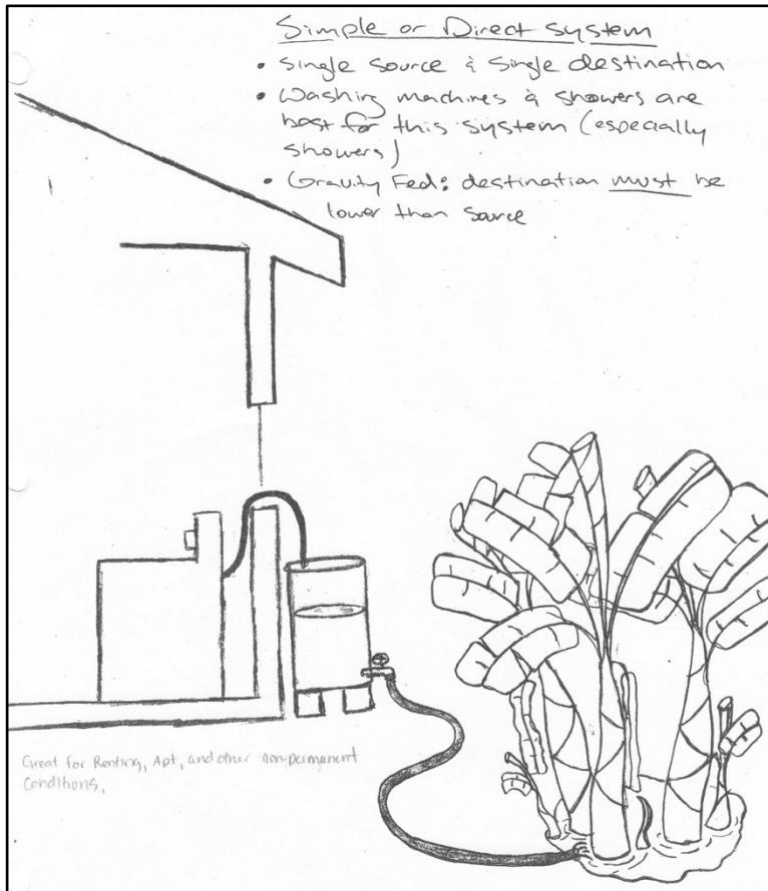 Simple or Direct System
• Single source & Single destination
• Washing machines & showers are
best for this system (especially
showers)
• Gravity Fed: destination must be
lower than source
Great for Renting, Apt, and other non-permanent
Conditions,